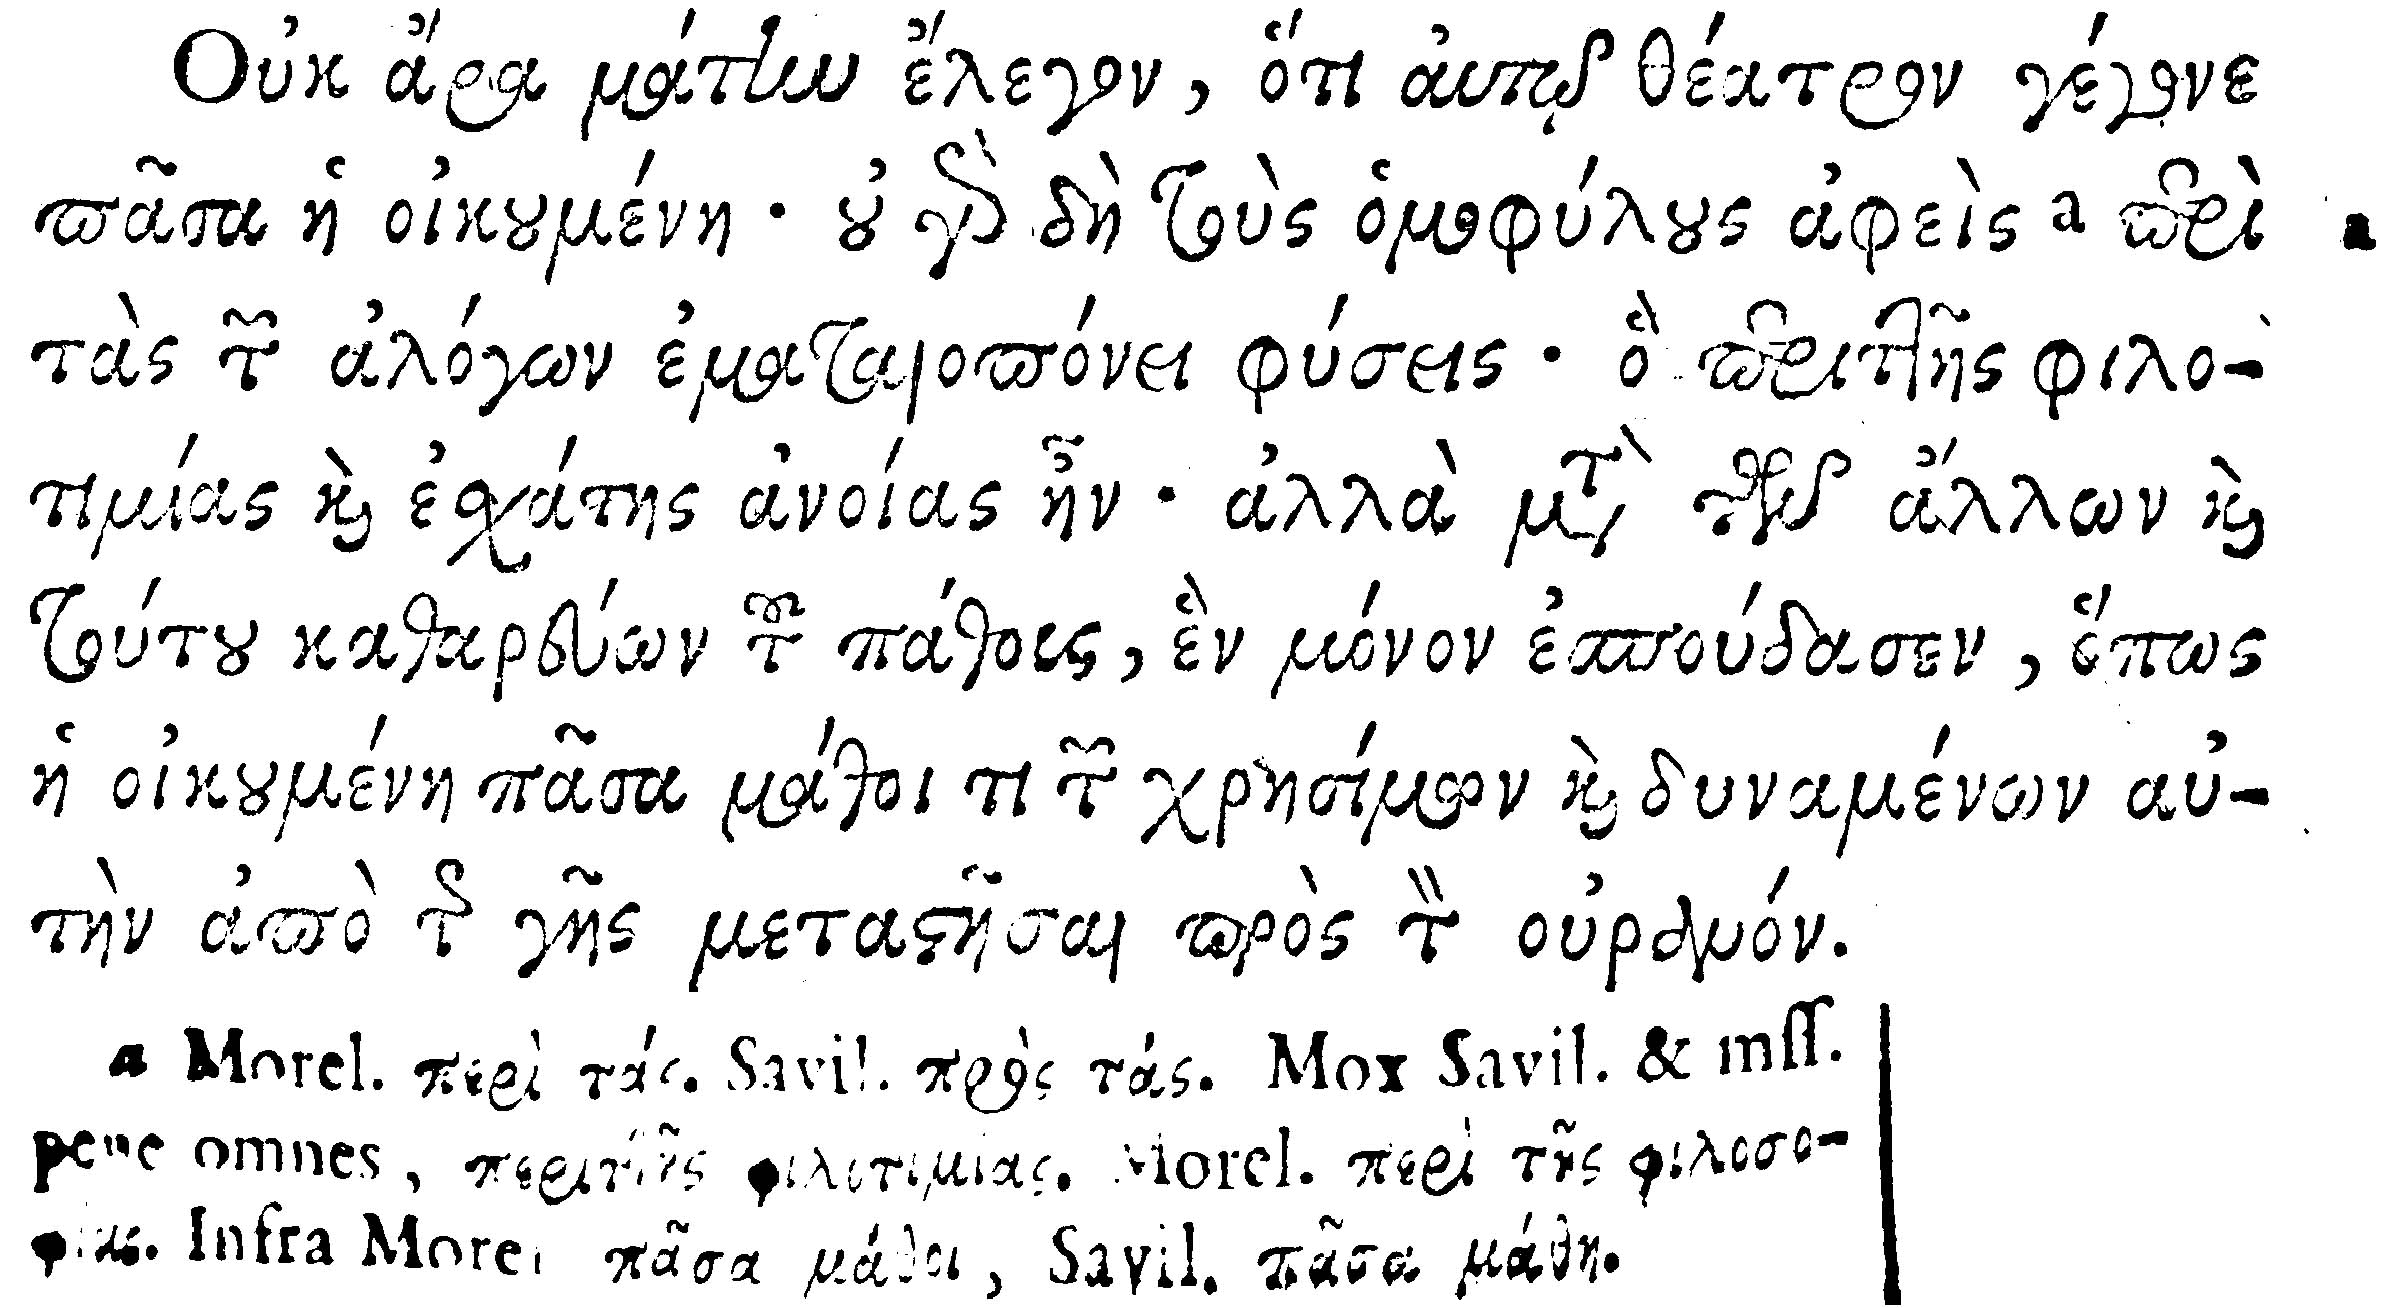 Οὐκ ἄρα μάτην ἔλεγον, ὅτι αὐτῷ θέατρον γέγονε
πᾶσα ἡ οἰκουμένη· οὐ γὰρ δὴ τοὺς ὁμοφύλους ἀφεὶς a περὶ a
τὰς τῶν ἀλόγων ἐματαιοπόνει φύσεις· ὃ περιττῆς φιλο-
τιμίας καὶ ἐσχάτης ἀνοίας ἦν· ἀλλὰ μετὰ τῶν ἄλλων καὶ
τούτου καθαρεύων τοῦ πάθους, ἓν μόνον ἐσπούδασεν, ὅπως
ἡ οἰκουμένη πᾶσα μάθοι τι τῶν χρησίμων καὶ δυναμένων αὐ-
τὴν ἀπὸ τῆς γῆς μεταστῆσαι πρὸς τὸν οὐρανόν.
a Morel. περὶ τάς. Savil. πρὸς τάς. Mox Savil. & mss.
pene omnes, περιττῆς φιλοτιμίας. Morel. περὶ τῆς φιλοσο-
φίας. Infra Morel. πᾶσα μάθοι, Savil. πᾶσα μάθη.